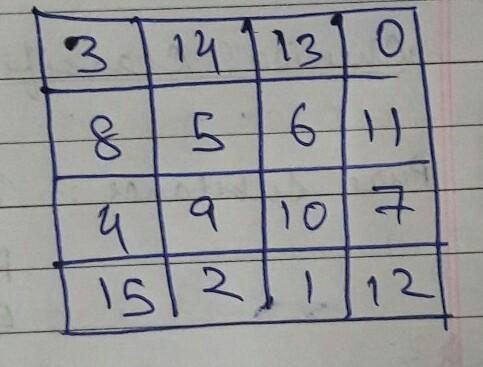 3 14 13 0
8 5 6 11
4 9 10 7
15 2 1 12